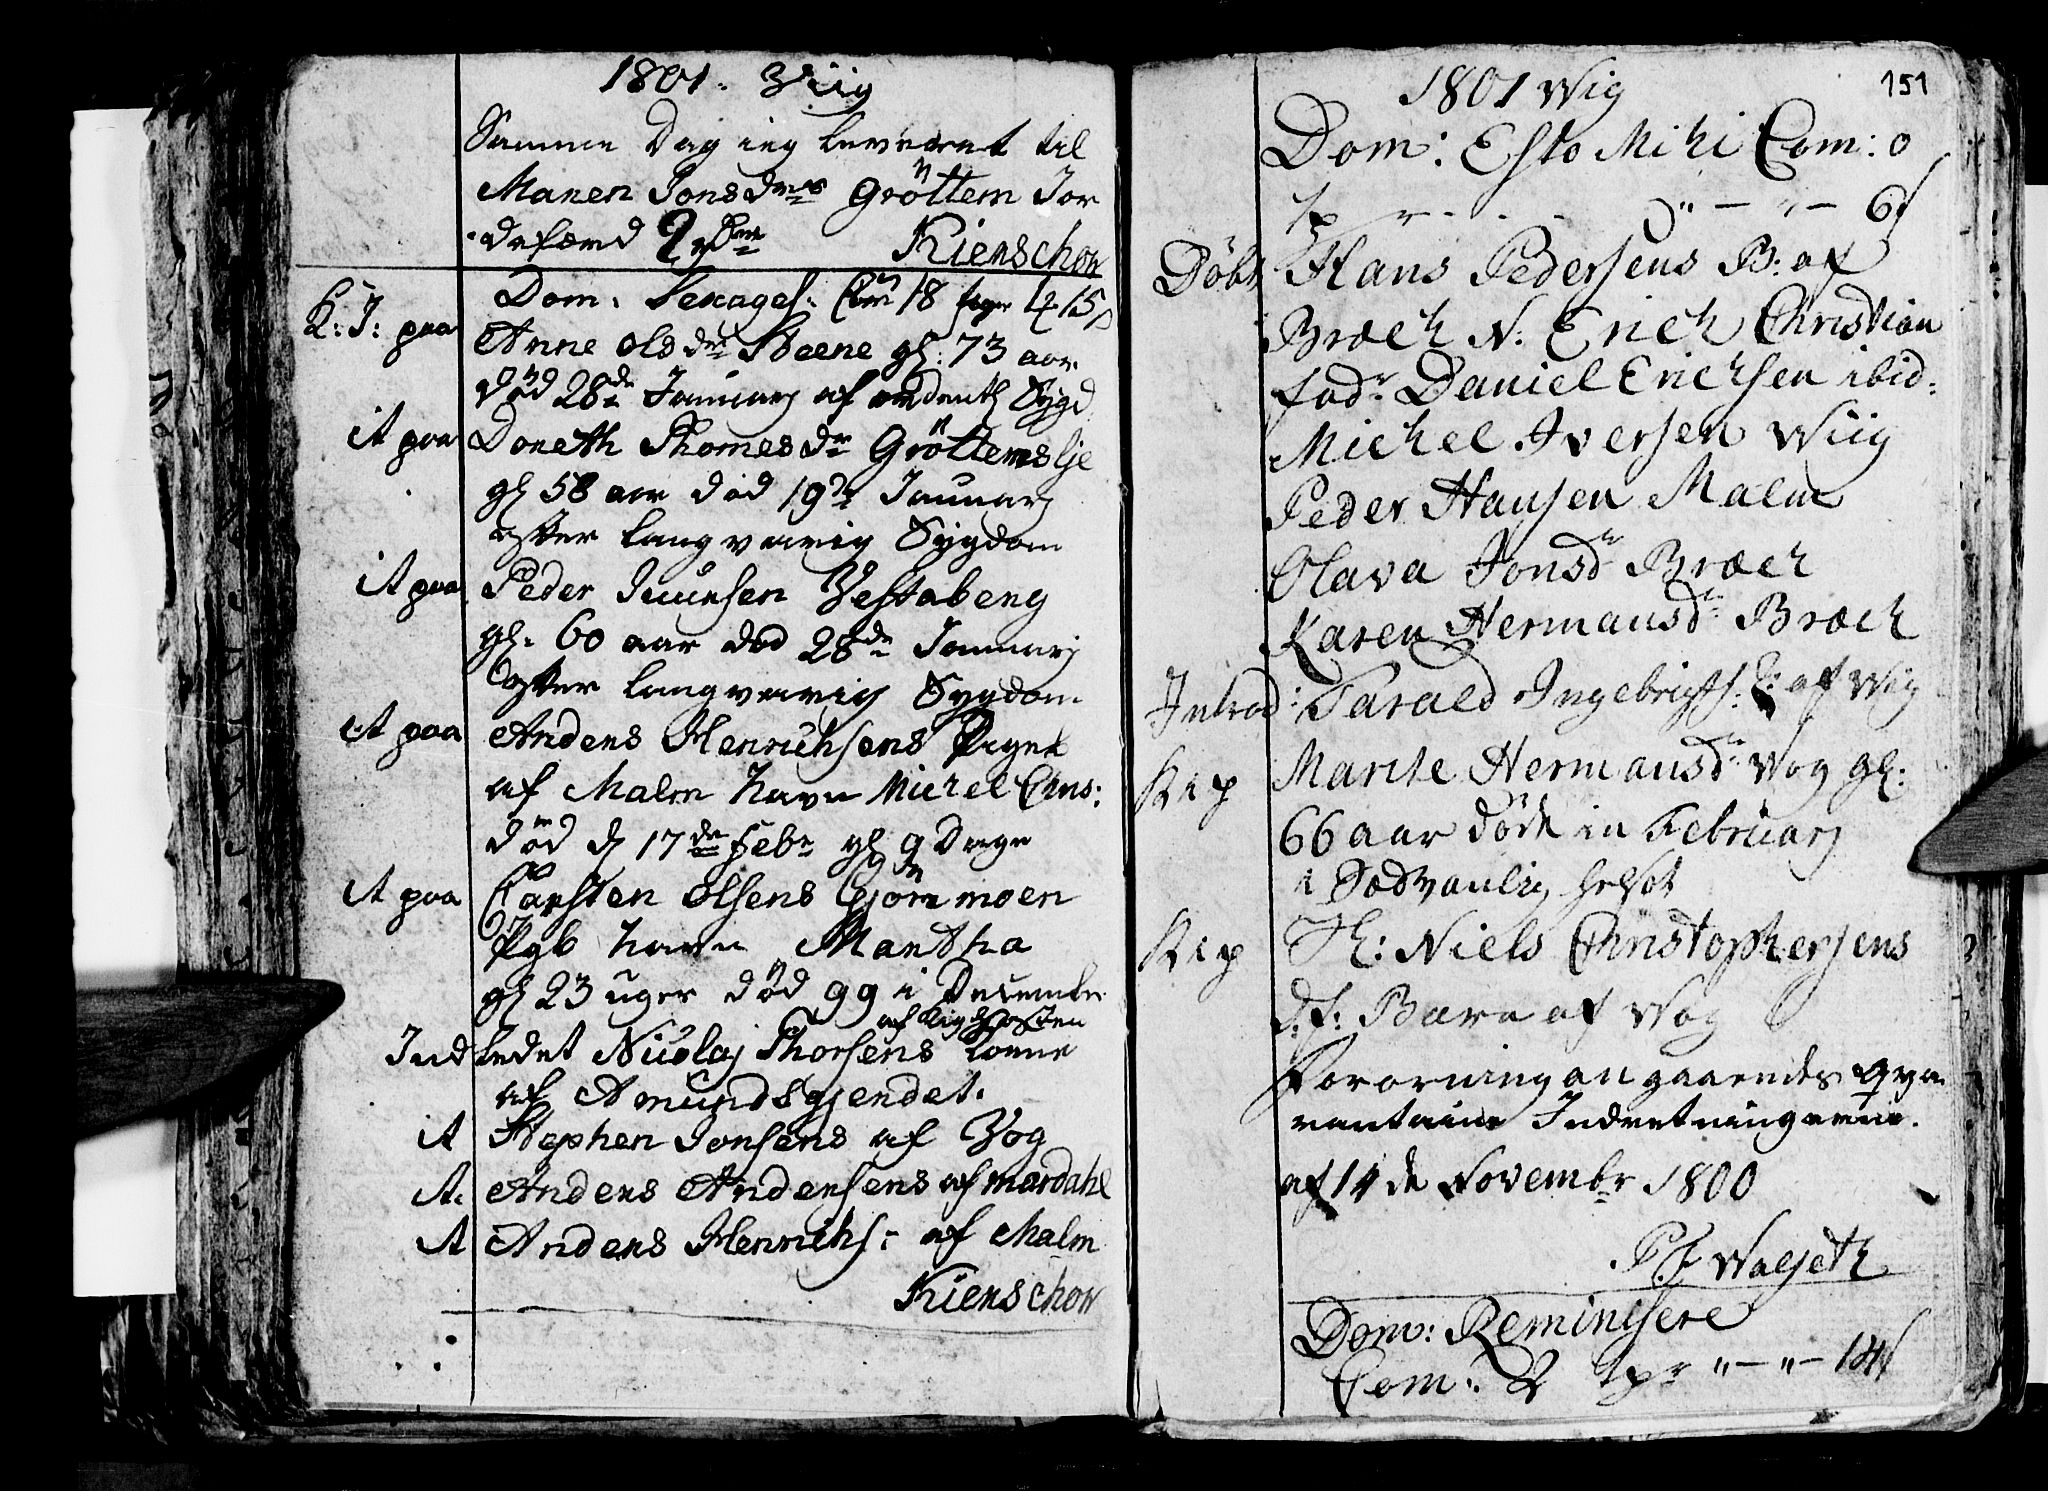 1801. Viig
Samme Dag ieg leveret til
Maren Jonsdr Grøttem Jor
defærd 2 rdr
Kierschow
Dom. Sexages. Com 18
K: J: paa Anne Olsdr Steene gl: 73 aar
død 28de Januarj af Sygd
it paa Doreth Thomesdr Grøttemslje
gl 58 aar død 19de Januarj
efter langvarig Sygdom
it paa Peder Iversen Vestaberg
gl. 60 aar død 28de Januarj
efter langvarig Sygdom
it paa Anders Henrichsens
af Malm havn Michel
død d 17de Febr gl 9 Dage
it paa Carsten Olsens moen
Pgb havn Martha
gl 23 uger død 99 i December
af Kighosten
Indledet Nicolaj Thorsens Kone
af Amundsgjerdet.
it Stephen Jonsens af Vog
it. Anders Andersens af mardahl
it Anders Henrichs: af Malm
Kierschow
151
1801 Wiig
Dom: Esto Mihi Com: 0
6
Døbt Hans Pedersens B: af
Bræch N: Erich Christian
fadr Daniel Erichsen ibid:
Michel Iversen Wiig
Peder Hansen Malm
Olava Jonsdr Bræch
Karen Hermansdr Bræch
Introd: Tarald Ingebrigts: K: af Wiig
K i p Marite Hermansdr Vog gl:
66 aar døde in Februarj
K i p Th: Niels Christophersens
d: f: Barn af Vog
Forordning angaaendes Qva
rantaine Indretningerne.
af 14de Novembr 1800
P: F Walseth
Dom: Reminisere
Com: 2 14